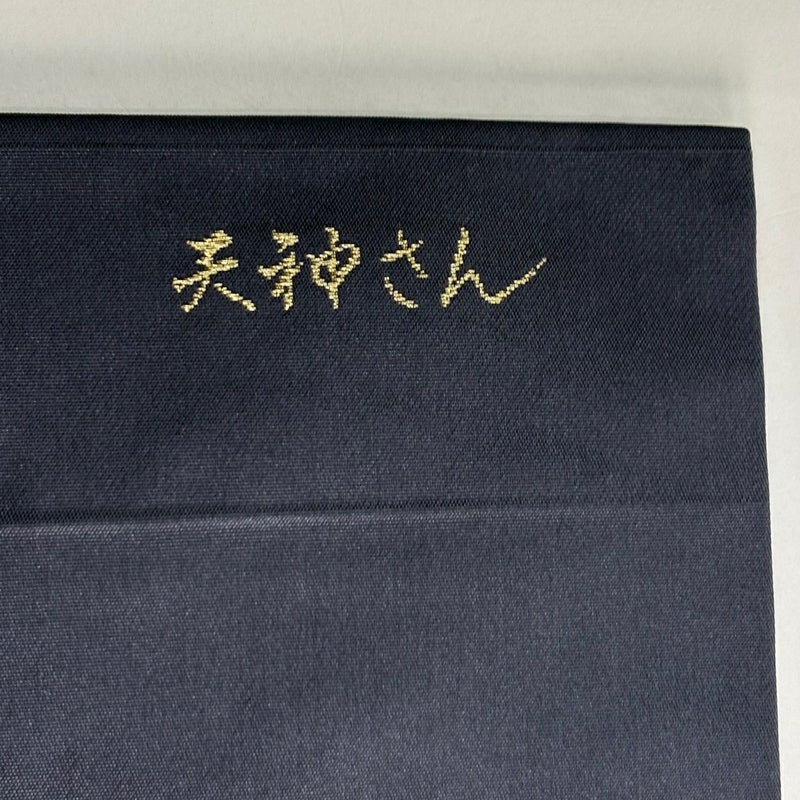 天神さん